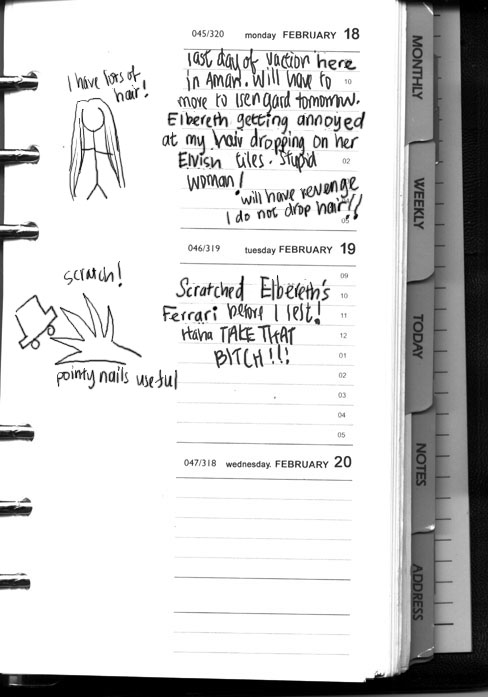 045/320 monday FEBRUARY 18
last day of vaction here
in Aman. Will have to
10
more to Isengard tomorrow.
Elbereth getting annoyed
at my hair dropping on her
Elvish tiles. Stupid
02
woman!
will have revenge
I do not drop hair!!
05
I have lots of
hair!
046/319 tuesday FEBRUARY 19
09
Scratched Elbereth's
10
Ferrari before I left!
11
Haha TAKE THAT
12
BITCH!!!
01
02
03
04
05
scratch!
pointy nails useful
047/318 wednesday. FEBRUARY 20
MONTHLY
WEEKLY
TODAY
NOTES
ADDRESS